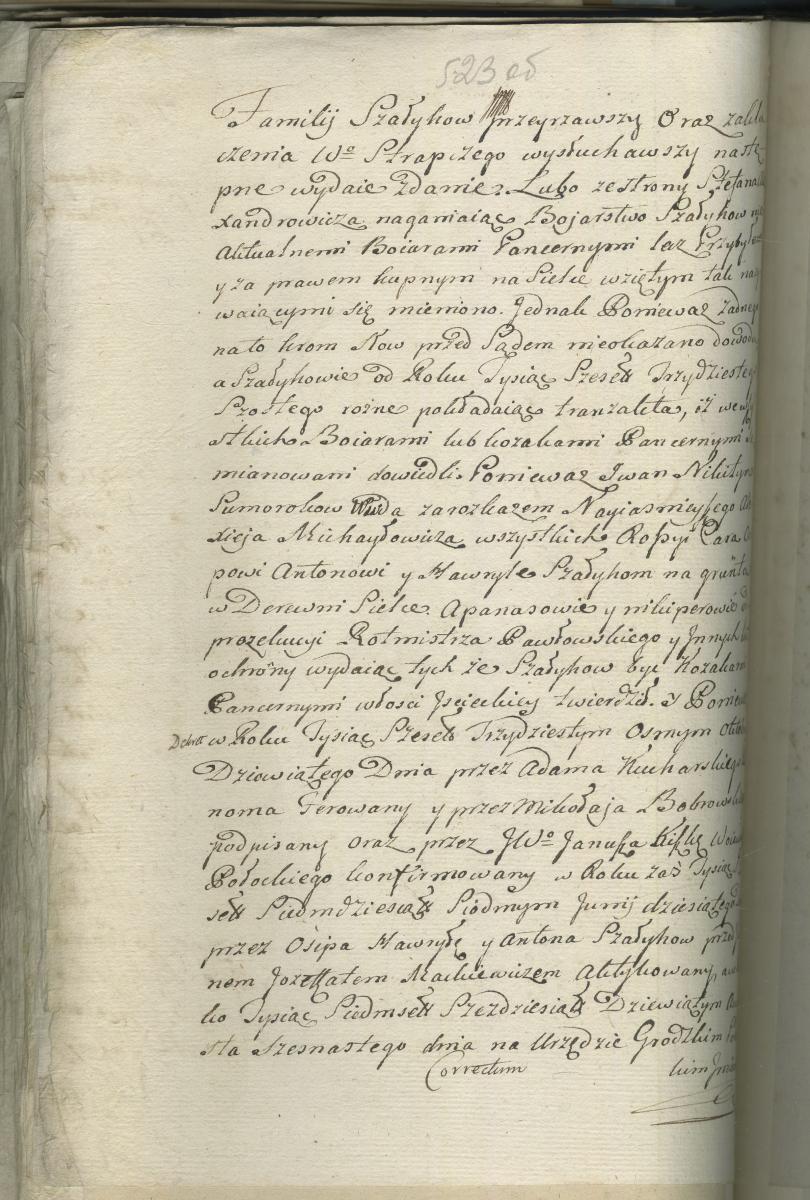 523 об
Familij Szałyhow przeyrzawszy Oraz zakła
czenia Wo Strapczego wysłuchawszy nastę-
pne wydaie Zdanie. Lubo ze strony Stefana
xandrowicza naganiaiąc Bojarstwo Szałyhow
Aktualnemi Boiarami Pancernymi lecz
y za prawem kupnym na Sielce wziętym tak
waiącymi się mieniono. Jednak Ponieważ żadnego
na to krom Now przed Sądem nieokazano dowodu
a Szałyhowie od Roku Tysiąc Szesett Trzydziestego
Szostego rożne pokładaiąc tranzakta, iż we
stkich Boiarami lub kozakami Pancernymi
mianowani dowiedli. Ponieważ Iwan Nikityn
Sumorokow Woda zarozkazem Nayiasnieyszego Ale
xieja Michayłowicza wszystkich Rossyi Cara
powi Antonowi y Hawryle Szałyhom na grunta
w Derewni Sielce. Apanasowie y nikiperowie
prozekucyi Rotmistrza Pawłowskiego y Innych
ochrony wydaiąc tych że Szałyhow być Kozakami
Pancernymi włosci Jezieckiey twierdził. y Poniew
Dekret w Roku Tysiąc Szesetb Trzydziestym Osmym Oktob
Dziewiątego Dnia przez Adama Kucharskiego
noma Ferowany y przez Mikołaja Bobrows
podpisany oraz przez JWo Janusza Kiszkę Woiew
Połockiego konfirmowany w Roku zaś Tysiąc
sett Siedmdziesiątt Siódmym Junij dziesiątego
przez Osipa Hawryłę y Antona Szałyhow przed
nem Jozeffatem Mackiewiczem Aktykowany,
ko Tysiąc Siedmsett Szezdziesiątt Dziewiątym
sta Szesnastego dnia na Urzędzie Grodzkim
Correctum kim